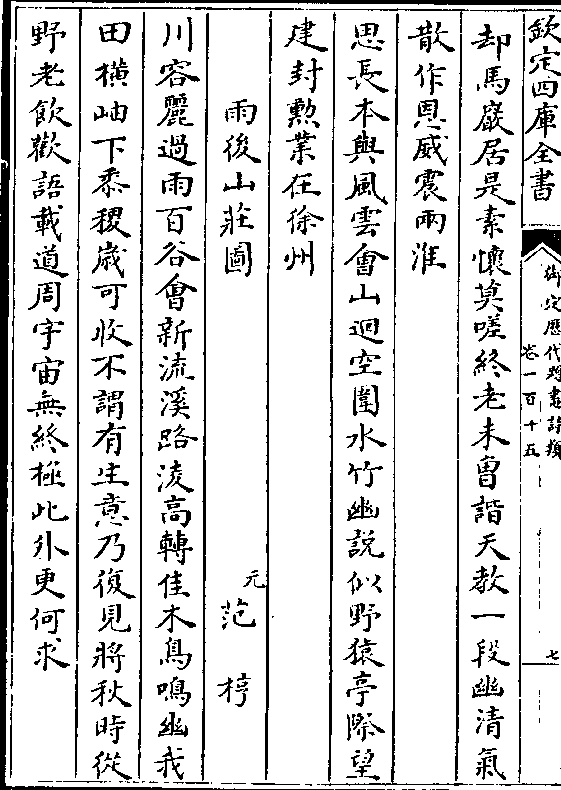 欽定四庫全書
御定歷代題畫詩類
卷一百十五
七
却馬巖居是素懷莫嗟終老未曾諧天教一段幽清氣
散作恩威震兩淮
思長本與風雲會山迥空圍水竹幽說似野猿亭際望
建封勲業在徐州
雨後山莊圖
元范梈
川容麗過雨百谷會新流溪路淩高轉佳木鳥鳴幽我
田橫岫下黍稷歳可收不謂有生意乃復見將秋時從
野老飲歡語載道周宇宙無終極此外更何求